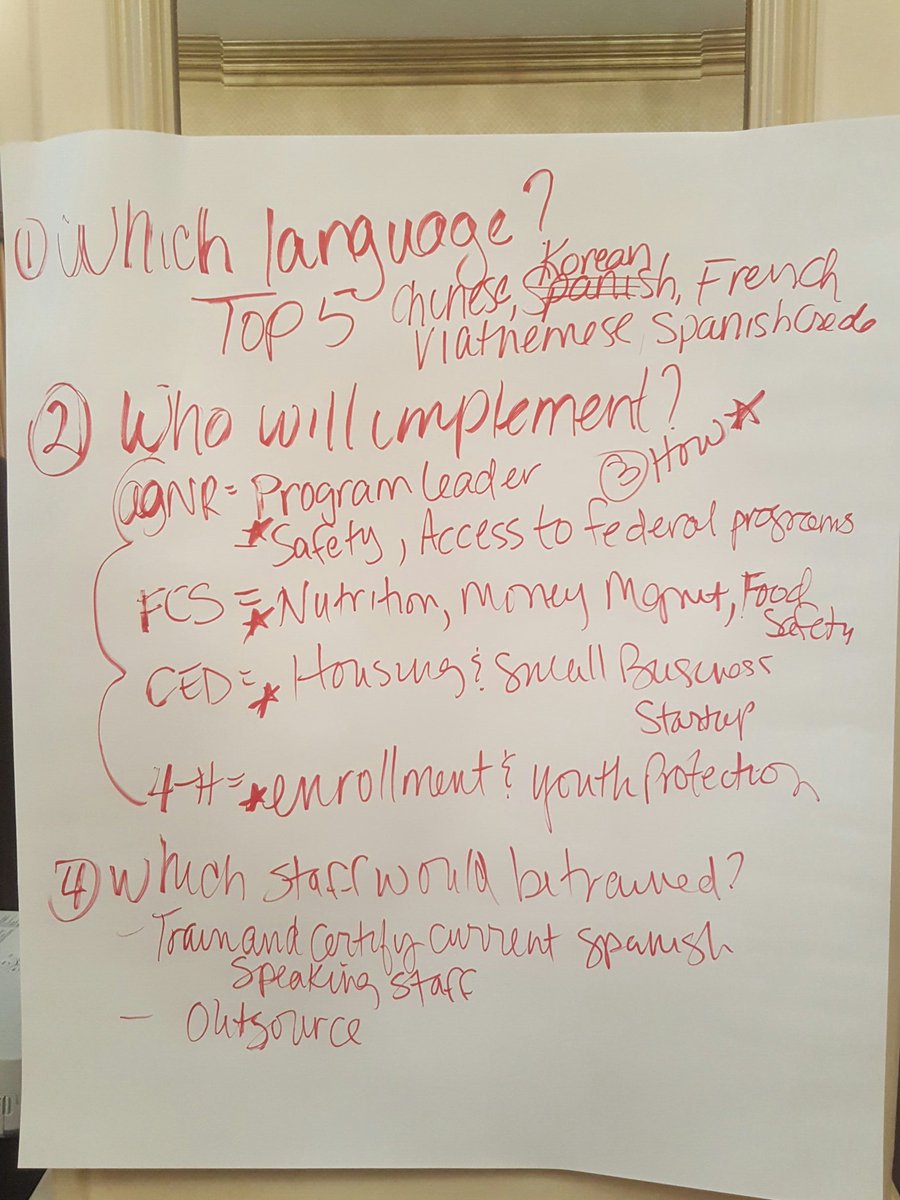 ① Which language?
Top 5 Chinese, Korean, Spanish, French
Viatnemese, Spanish Creole
② Who will implement?
③ How ★
agNR = Program leader
★ Safety, Access to federal programs
FCS = ★ Nutrition, Money Mgmt, Food
Safety
CED = ★ Housing & Small Business
Startup
4-H = ★ enrollment & youth Protection
④ Which staff would be trained?
- Train and certify current spanish
speaking staff
- Outsource